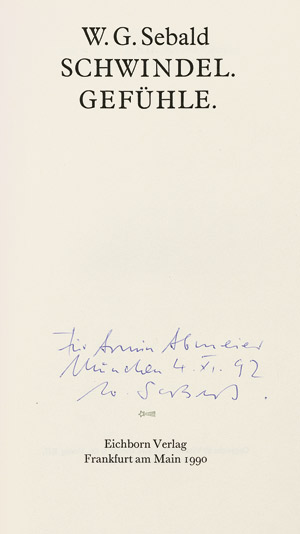 W. G. Sebald
SCHWINDEL.
GEFÜHLE.
Für Armin Abmeier
München 4. XI. 92
W. Sebald
Eichborn Verlag
Frankfurt am Main 1990